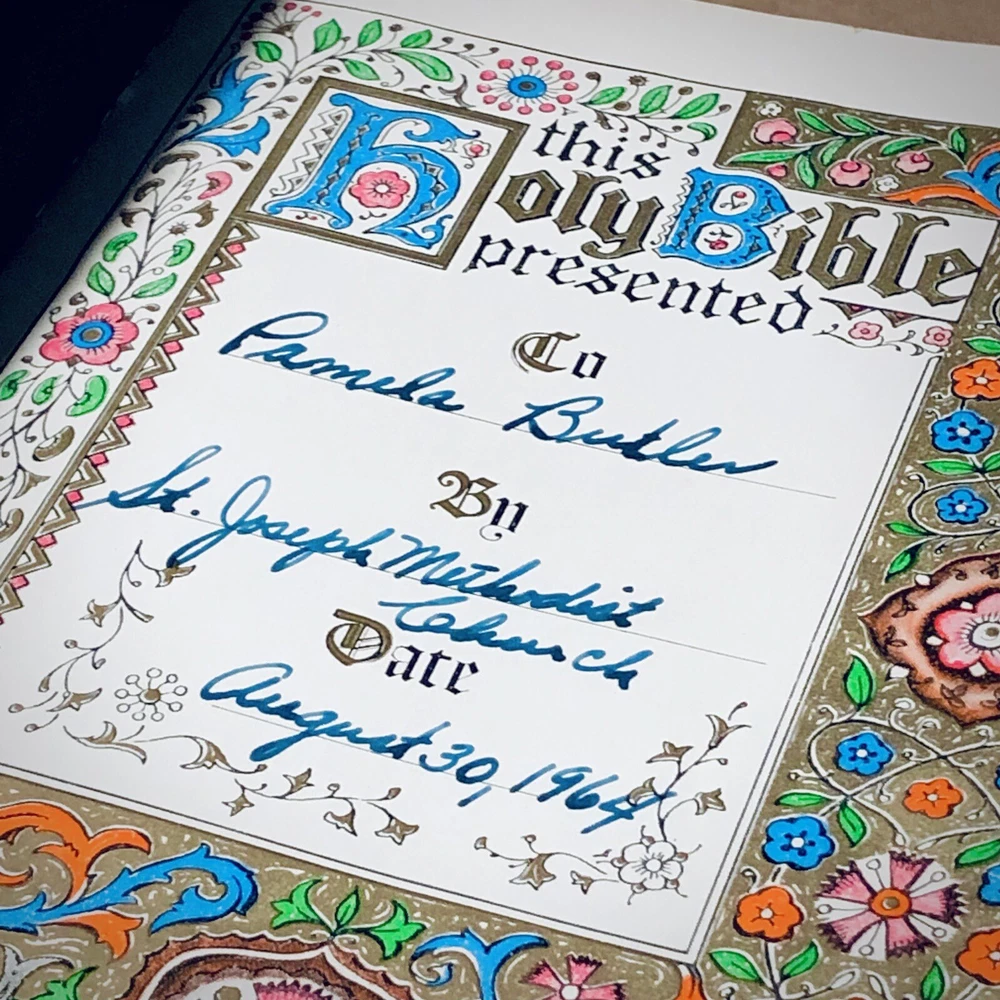 this
Holy Bible
presented
To
Pamela Butler
By
St. Joseph Methodist
Church
Date
August 30, 1964